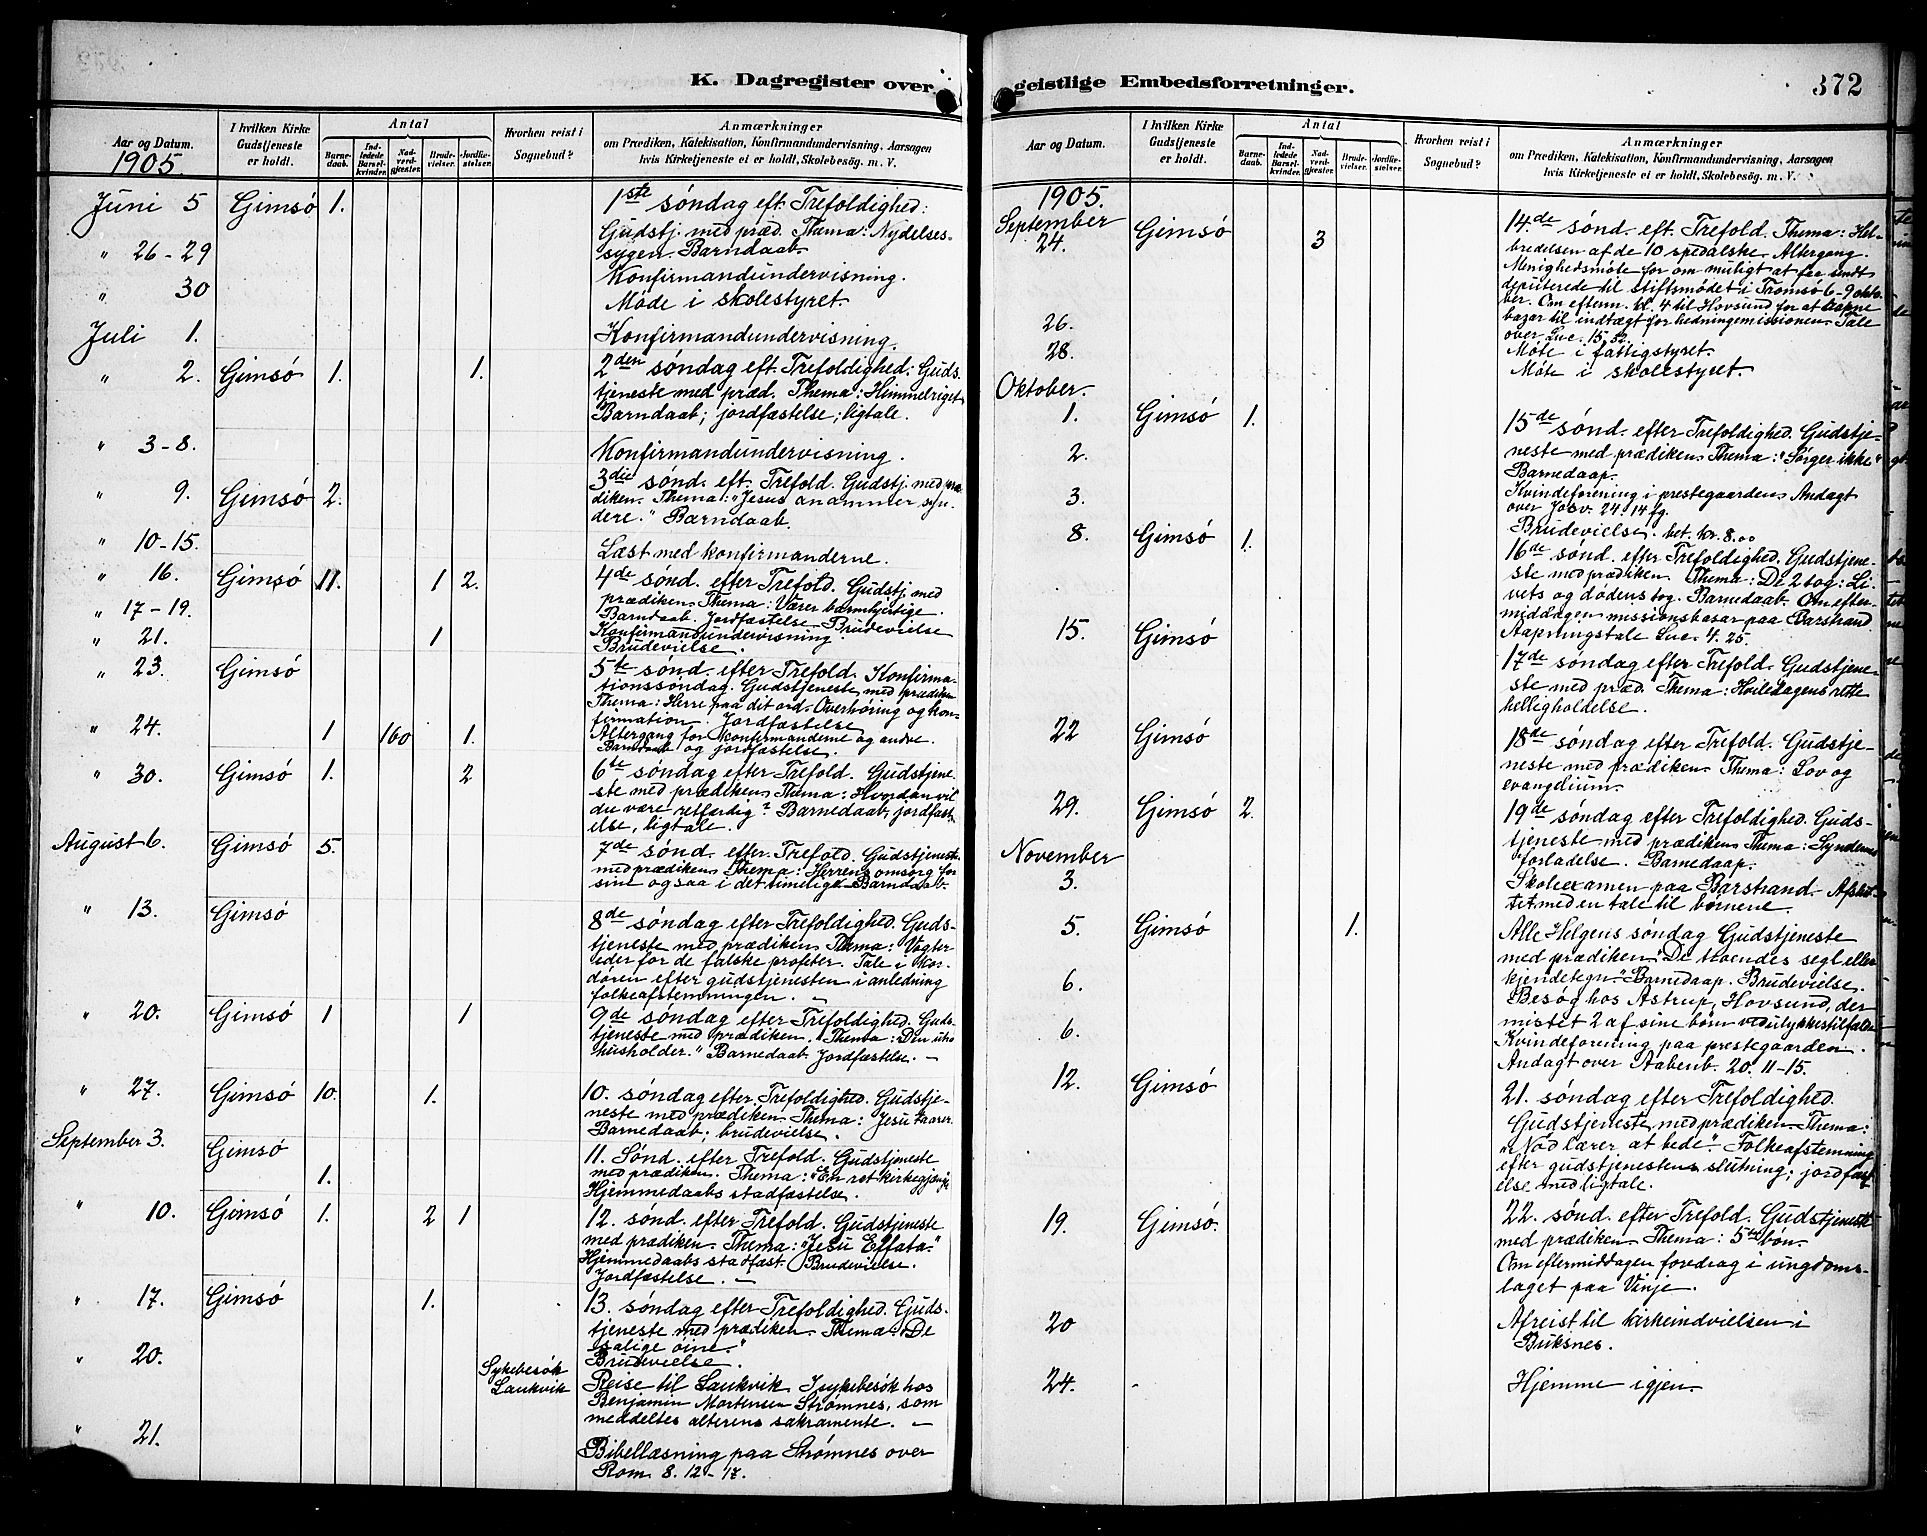 K. Dagregister over
Aar og Datum.
1905
I hvilken Kirke
Gudstjeneste
er holdt.
Antal
Barne-
daab.
Ind-
ledede
Barsel-
kvinder.
Nad-
verd-
gjester.
Brude-
vielser.
Jordfæ-
stelser.
Hvorhen reist i
Sognebud?
Anmærkninger
om Prædiken, Katekisation, Konfirmandundervisning, Aarsagen
hvis Kirketjeneste ei er holdt, Skolebesög. m. V.
Juni 5 Gimsö 1. 1ste söndag eft. Trefoldighed:
Gudstj. med præd. Thema: Nydelses-
sygen. Barndaab.
" 26-29 Konfirmandundervisning.
" 30 Möde i skolestyret.
Juli 1. Konfirmandundervisning.
" 2. Gimsö 1. 1. 2den söndag eft. Trefoldighed: Guds-
tjeneste med præd. Thema: Himmelriget
Barndaab; jordfæstelse; ligtale.
" 3-8. Konfirmandundervisning.
" 9. Gimsö 2. 3die sönd. eft. Trefold. Gudstj. med præ-
diken. Thema: "Jesus anammer syn-
dere." Barndaab.
" 10-15. Læst med konfirmanderne.
" 16. Gimsö 11. 1 2. 4de sönd. efter Trefold. Gudstj. med
prædiken. Thema: Værer barmhjertige.
Barndaab. Jordfæstelse. Brudevielse
" 17-19. Konfirmandundervisning
" 21. 1 Brudevielse.
" 23. Gimsö 5te sönd. efter Trefold. Konfirma-
tionssöndag. Gudstjeneste med prædiken
Thema: Herre paa dit ord. Overhöring og kon-
firmation. Jordfæstelse
" 24. 1 160 1. Altergang for konfirmanderne og andre.
Barndaab og jordfæstelse.
" 30. Gimsö 1. 2 6te söndag efter Trefold. Gudstjene-
ste med prædiken. Thema: Hvordan vil
du være retfærdig? Barnedaab, jordfæst-
else, ligtale.
August 6. Gimsö 5. 7de sönd. efter Trefold. Gudstjeneste
med prædiken. Thema: Herrens omsorg for
sine ogsaa i det timelige. Barndaab.
" 13. Gimsö 8de söndag efter Trefoldighed. Guds-
tjeneste med prædiken. Thema: Vogter
eder for de falske profeter. Tale i kor-
dören efter gudstjenesten i anledning
folkeafstemningen.
" 20. Gimsö 1 1 9de söndag efter Trefoldighed. Guds-
tjeneste med prædiken. Thema: Den utro
husholder." Barnedaab. Jordfæstelse.
" 27. Gimsö 10. 1. 10. söndag efter Trefoldighed. Gudstje-
neste med prædiken. Thema: Jesu taarer
Barnedaab; brudevielse.
September 3. Gimsö 1. 11. Sönd. efter Trefold. Gudstjeneste
med prædiken. Thema: En ret kirkegjænger
Hjemmedaabs stadfæstelse.
" 10. Gimsö 1. 2 1 12. sönd. efter Trefold. Gudstjeneste
med prædiken. Thema: "Jesu Effata."
Hjemmedaabs stadfæst. Brudevielse.
Jordfæstelse.
" 17. Gimsö 1. 13. söndag efter Trefoldighed. Guds-
tjeneste med prædiken. Thema: De
salige öine."
Brudevielse.
" 20. Sykebesök
Laukvik Reise til Laukvik I sykebesök hos
Benjamin Mortensen Strömnes, som
meddeltes alterens sakramente.
" 21. Bibellæsning paa Strömnes over
Rom. 8. 12-17.
geistlige Embedsforretninger.
372
Aar og Datum.
I hvilken Kirke
Gudstjeneste
er holdt.
Antal
Barne-
daab.
Ind-
ledede
Barsel-
kvinder.
Nad-
verd-
gjester.
Brude-
vielser.
Jordfæ-
stelser.
Hvorhen reist i
Sognebud?
Anmærkninger
om Prædiken, Katekisation, Konfirmandundervisning, Aarsagen
hvis Kirketjeneste ei er holdt, Skolebesög. m. V.
1905.
September
24. Gimsö 3 14de sönd. eft. Trefold. Thema: Hel-
bredelsen af de 10 spedalske. Altergang.
Menighedsmöte for om muligt at faa sendt
deputerede til stiftsmödet i Tromsö 6-9 okto-
ber. Om efterm. kl. 4 til Hovsund for at aapne
bazar til indtægt for hedningemissionen. Tale
over Luc. 15,
26. Möte i fattigstyret.
28. Möte i skolestyret
Oktober.
1. Gimsö 1. 15de sönd. efter Trefoldighed. Gudstje-
neste med prædiken. Thema: "Sörger ikke"
Barnedaap.
2. Kvindeforening i prestegaarden. Andagt
over Josv. 24. 14 fg.
3. Brudevielse. bet. kr. 8.00
8. Gimsö 1. 16de sönd. efter Trefoldighed. Gudstjene-
ste med prædiken. Thema: De 2 tog: Li-
vets og dödens tog. Barnedaab. Om efter-
middagen missionsbasar paa Barstrand
Aapningstale Luc. 4. 25.
15. Gimsö 17de söndag efter Trefold. Gudstjene-
ste med præd. Thema: Hviledagens rette
helligholdelse.
22 Gimsö 18de söndag efter Trefold. Gudstje-
neste med prædiken. Thema: Lov og
evangelium.
29. Gimsö 2. 19de söndag efter Trefoldighed. Guds-
tjeneste med prædiken. Thema: Syndernes
forladelse. Barnedaap.
November
3. Skoleexamen paa Barstrand. Afslut-
tet med en tale til börnene.
5. Gimsö 1. Alle Helgens söndag Gudstjeneste
med prædiken "De troendes segl eller
kjendetegn." Barnedaap. Brudevielse.
6. Besög hos Astrup, Hovsund, der
mistet 2 af sine börn ved ulykkestilfælde
6. Kvindeforening paa prestegaarden.
Andagt over Aabenb. 20. 11-15.
12. Gimsö 21. söndag efter Trefoldighed.
Gudstjeneste med prædiken. Thema:
"Nöd lærer at bede". Folkeafstemning
efter gudstjenestens slutning; jordfæst-
else med ligtale.
19. Gimsö. 22. sönd. efter Trefold. Gudstjeneste
med prædiken. Thema: 5te bön.
Om eftermiddagen foredrag i ungdoms-
laget paa Vinje.
20 Afreist til kirkeindvielsen i
Buksnes.
24. Hjemme igjen.